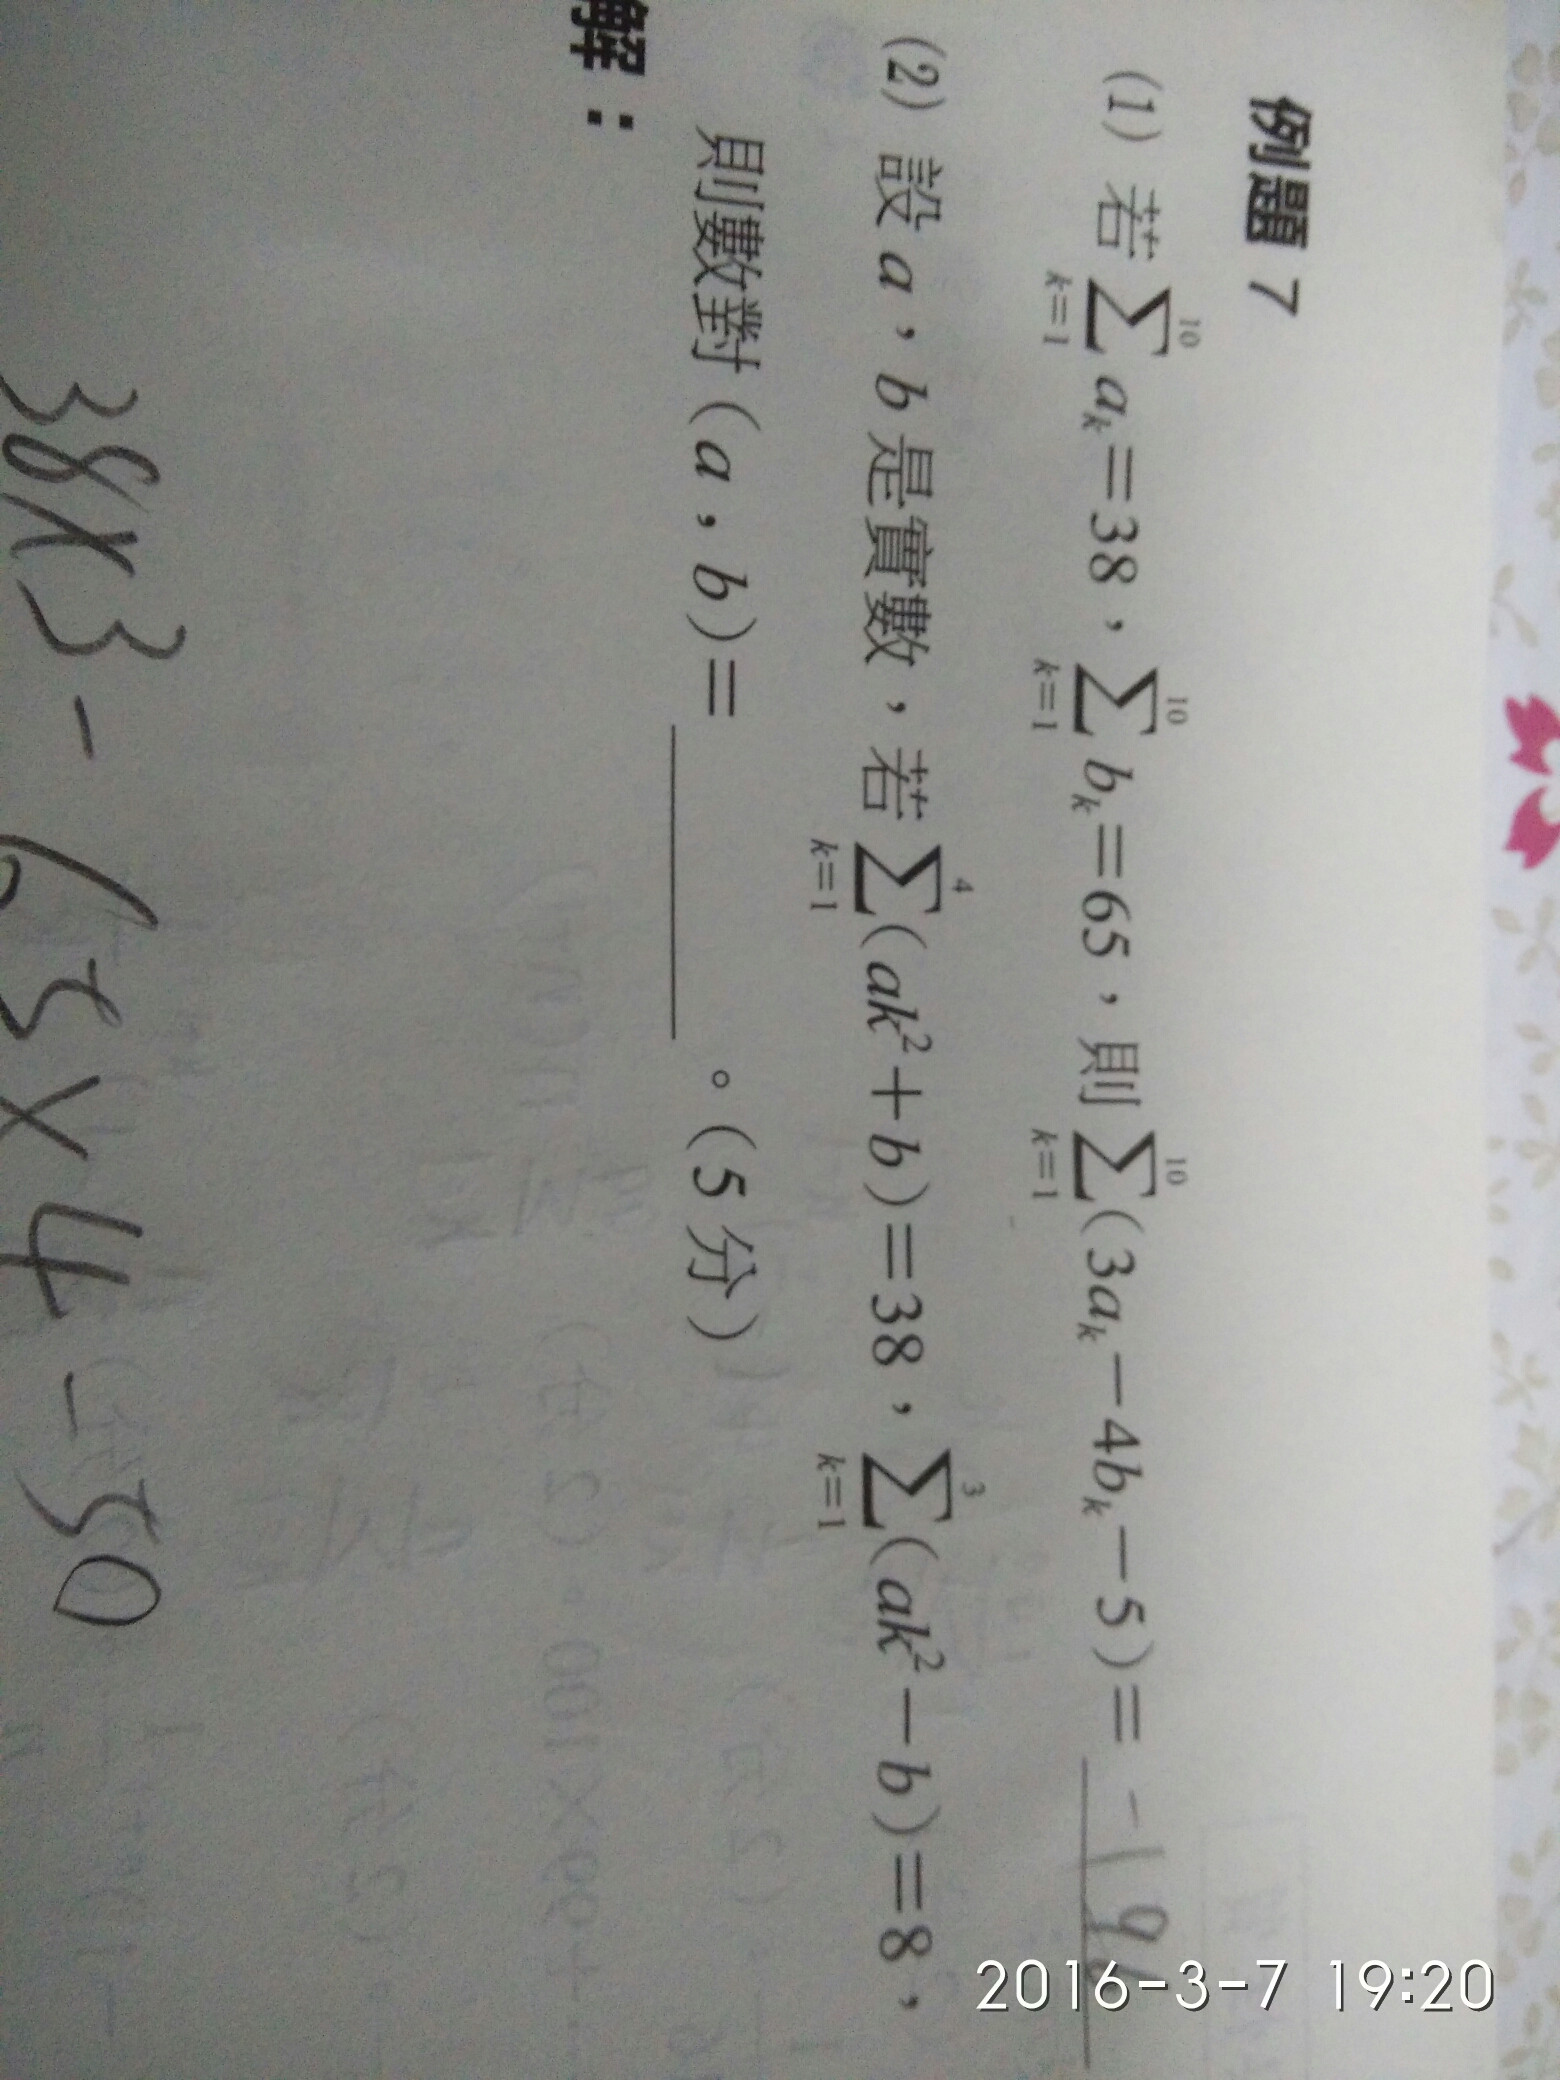 例題 7
(1) 若 \sum_{k=1}^{10} a_k=38，\sum_{k=1}^{10} b_k=65，則 \sum_{k=1}^{10} (3a_k-4b_k-5)= -196
(2) 設 a，b 是實數，若 \sum_{k=1}^{4} (ak²+b)=38，\sum_{k=1}^{3} (ak²-b)=8，
則數對 (a，b)=______。(5 分)
解：
38×3-65×4-50
2016-3-7 19:20